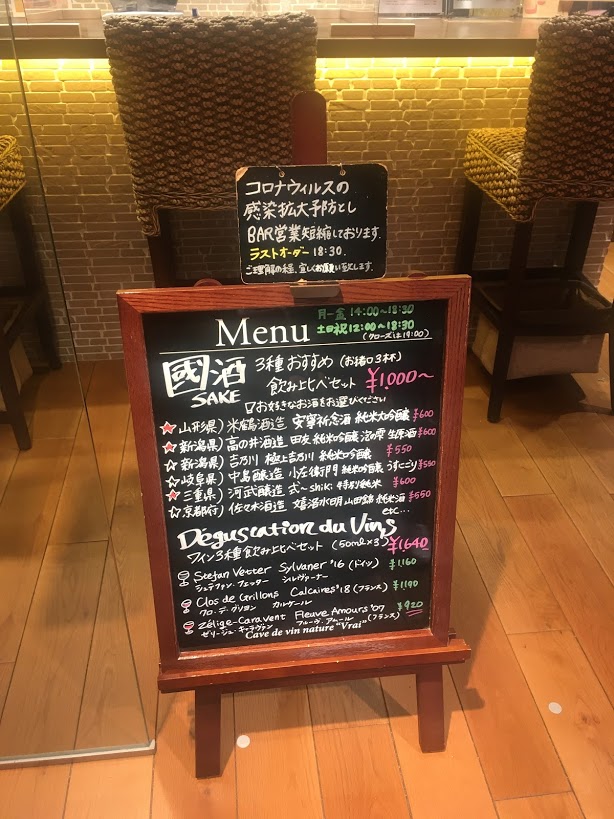 コロナウィルスの
感染拡大予防とし
BAR営業短縮しております.
ラストオーダー 18:30.
ご理解の程、宜しくお願い致します.
月ー金 14:00〜18:30
Menu 土日祝12:00〜18:30
(クローズは19:00)
國酒 SAKE
3種おすすめ (お猪口3杯)
飲み比べセット ¥1,000〜
お好きなお酒をお選びください
☆山形県) 米鶴酒造 安寧祈念酒 純米大吟醸 ¥600
☆新潟県) 高の井酒造 田友 純米吟醸 沼の雫 生原酒 ¥600
☆新潟県) 吉乃川 極上吉乃川 純米吟醸 ¥550
☆岐阜県) 中島醸造 小左衛門 純米吟醸 うすにごり ¥550
☆三重県) 河武醸造 式〜shiki 特別純米 ¥600
☆京都府) 佐々木酒造 嬉洛水明 山田錦 純米酒 ¥550
etc...
Déguscation du Vins
ワイン3種飲み比べセット (50ml×3) ¥1,640
Stefan Vetter Sylvaner '16 (ドイツ) ¥1,160
シュテファン・フェッター シルヴァーナー
Clos de Grillons Calcaires '18 (フランス) ¥1,190
クロ・デ・グリヨン カルケール
Zélige-Caravent Fleuve Amours '07 ¥920
ゼリージュ・キャラヴァン フルーヴ・アムール (フランス)
Cave de vin nature "Vrai"